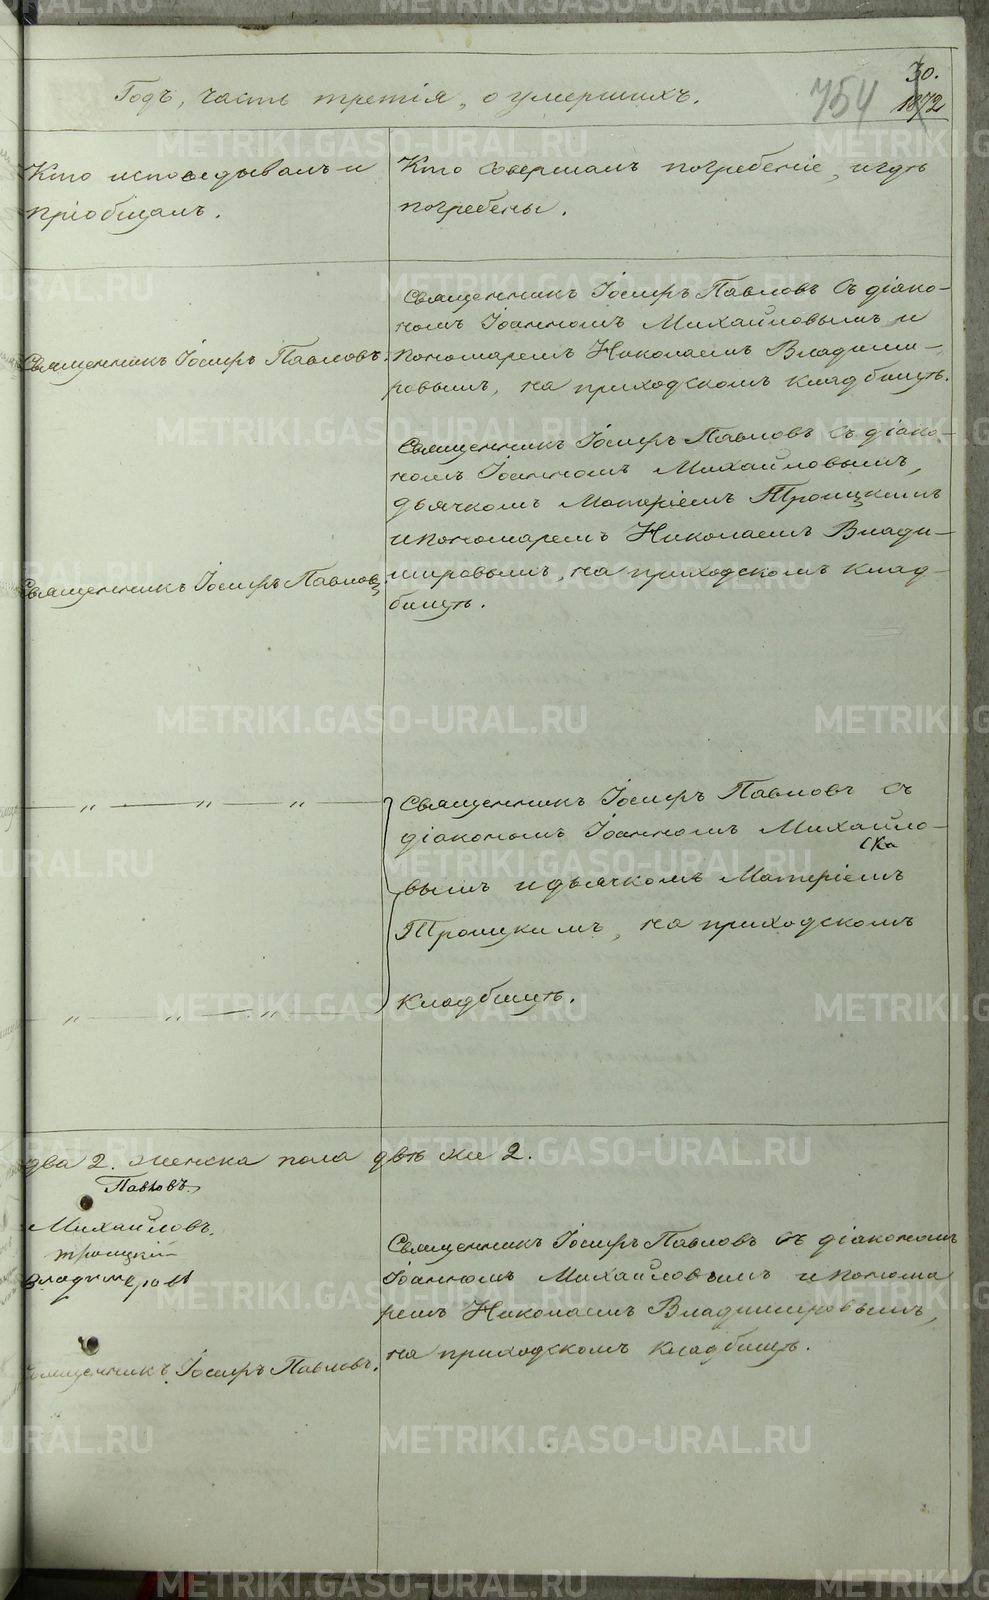 30.
754 1872
Годъ, часть третія, о умершихъ.
Кто исповѣдывалъ и
пріобщалъ.
Кто совершалъ погребеніе, и гдѣ
погребены.
Священникъ Іосифъ Павловъ.
Священникъ Іосифъ Павловъ съ діако-
номъ Іоанномъ Михайловымъ и
пономаремъ Николаемъ Владими-
ровымъ, на приходскомъ кладбищѣ.
Священникъ Іосифъ Павловъ.
Священникъ Іосифъ Павловъ съ діако-
номъ Іоанномъ Михайловымъ,
дьячкомъ Матѳіемъ Троицкимъ
и пономаремъ Николаемъ Влади-
мировымъ, на приходскомъ клад-
бищѣ.
— „ — „ — „ —
— „ — „ — „ —
Священникъ Іосифъ Павловъ съ
діакономъ Іоанномъ Михайло-
вымъ и дьячкомъ Матѳіемъ
Троицкимъ, на приходскомъ
кладбищѣ.
два 2. женска пола двѣ же 2.
Павловъ.
Михайловъ.
Троицкій
Владимеровъ
Священникъ Іосифъ Павловъ.
Священникъ Іосифъ Павловъ съ діакономъ
Іоанномъ Михайловымъ и понома
ремъ Николаемъ Владимировымъ,
на приходскомъ кладбищѣ.
METRIKI.GASO-URAL.RU